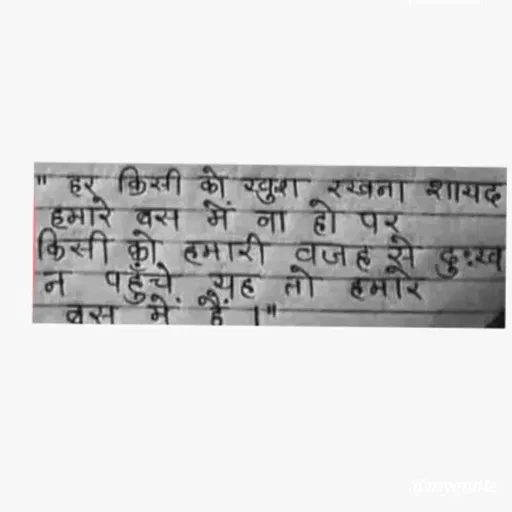 " हर किसी को खुश रखना शायद
हमारे बस में ना हो पर
किसी को हमारी वजह से दुःख
न पहुँचे यह तो हमारे
बस में हैं ।"